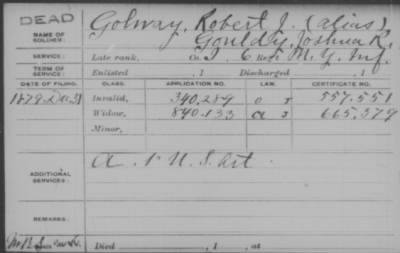 DEAD
NAME OF SOLDIER: Golway, Robert J. (alias)
Gouldy, Joshua R.
SERVICE: Late rank, Co. I, 6 Reg't N. Y. Inf.
TERM OF SERVICE: Enlisted , 1 Discharged , 1
DATE OF FILING. CLASS. APPLICATION NO. LAW. CERTIFICATE NO.
1879 Dec 31 Invalid, 340.289 557.551
Widow, 840.133 665.379
Minor,
ADDITIONAL SERVICES: A. 1" U. S. Art.
REMARKS:
Died , 1 , at